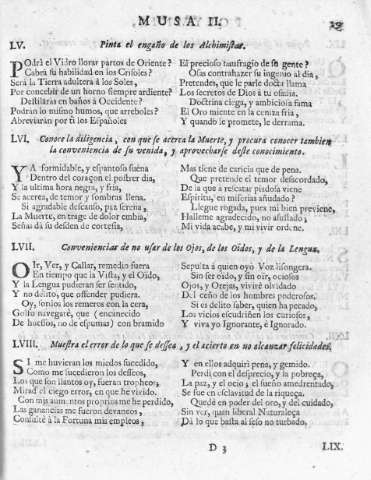 MUSA II.
LV. Pinta el engaño de los Alchimistas.
POdrá el Vidro llorar partos de Oriente?
Cabrá su habilidad en los Crisoles?
Será la Tierra adultera á los Soles,
Por concebir de un horno siempre ardiente?
Destilarás en baños á Occidente?
Podrán lo mismo humos, que arreboles?
Abreviarán por tì los Españoles
El precioso naufragio de su gente?
Osas contrahazer su ingenio al dia,
Pretendes, que le parle docta llama
Los secretos de Dios á tu osadia.
Doctrina ciega, y ambiciosa fama
El Oro miente en la ceniza fria,
Y quando le promete, le derrama.
LVI. Conoce la diligencia, con que se acerca la Muerte, y procura conocer tambien
la conveniencia de su venida, y aprovecharse deste conocimiento.
YA formidable, y espantoso suena
Dentro del coraçon el postrer dia,
Y la ultima hora negra, y fria,
Se acerca, de temor y sombras llena.
Si agradable descanso, paz serena,
La Muerte, en trage de dolor embia,
Señas dá su desden de cortesia,
Mas tiene de caricia que de pena.
Que pretende el temor desacordado,
De la que à rescatar piadosa viene
Espiritu, en miserias añudado?
Llegue rogada, pues mi bien previene,
Halleme agradecido, no asustado,
Mi vida acabe, y mi vivir ordene.
LVII. Conveniencias de no usar de los Ojos, de los Oidos, y de la Lengua.
OIr, Ver, y Callar, remedio fuera
En tiempo que la Vista, y el Oìdo,
Y la Lengua pudieran ser sentido,
Y no delito, que offender pudiera.
Oy, sordos los remeros con la cera,
Golfo navegaré, que (encanecido
De huesos, no de espumas) con bramido
Sepulta á quien oyó Voz lisongera.
Sin ser oido, y sin oir, ociosos
Ojos, y Orejas, viviré olvidado
Del ceño de los hombres poderosos.
Si es delito saber, quien ha pecado,
Los vicios escudriñen los curiosos,
Y viva yo Ignorante, è Ignorado.
LVIII. Muestra el error de lo que se dessea, y el acierto en no alcanzar felicidades.
SI me huvieran los miedos sucedido,
Como me sucedieron los desseos,
Los que son llantos oy, fueran tropheos;
Mirad el ciego error, en que he vivido.
Con mis aumentos proprios me he perdido,
Las ganancias me fueron devaneos,
Consulté à la Fortuna mis empleos,
Y en ellos adquirì pena, y gemido.
Perdì con el desprecio, y la pobreça,
La paz, y el ocio; el sueño amedrentado,
Se fue en esclavitud de la riqueça.
Quedé en poder del oro, y del cuidado,
Sin ver, quan liberal Naturaleça
Dá lo que basta al seso no turbado.
D 3
LIX.